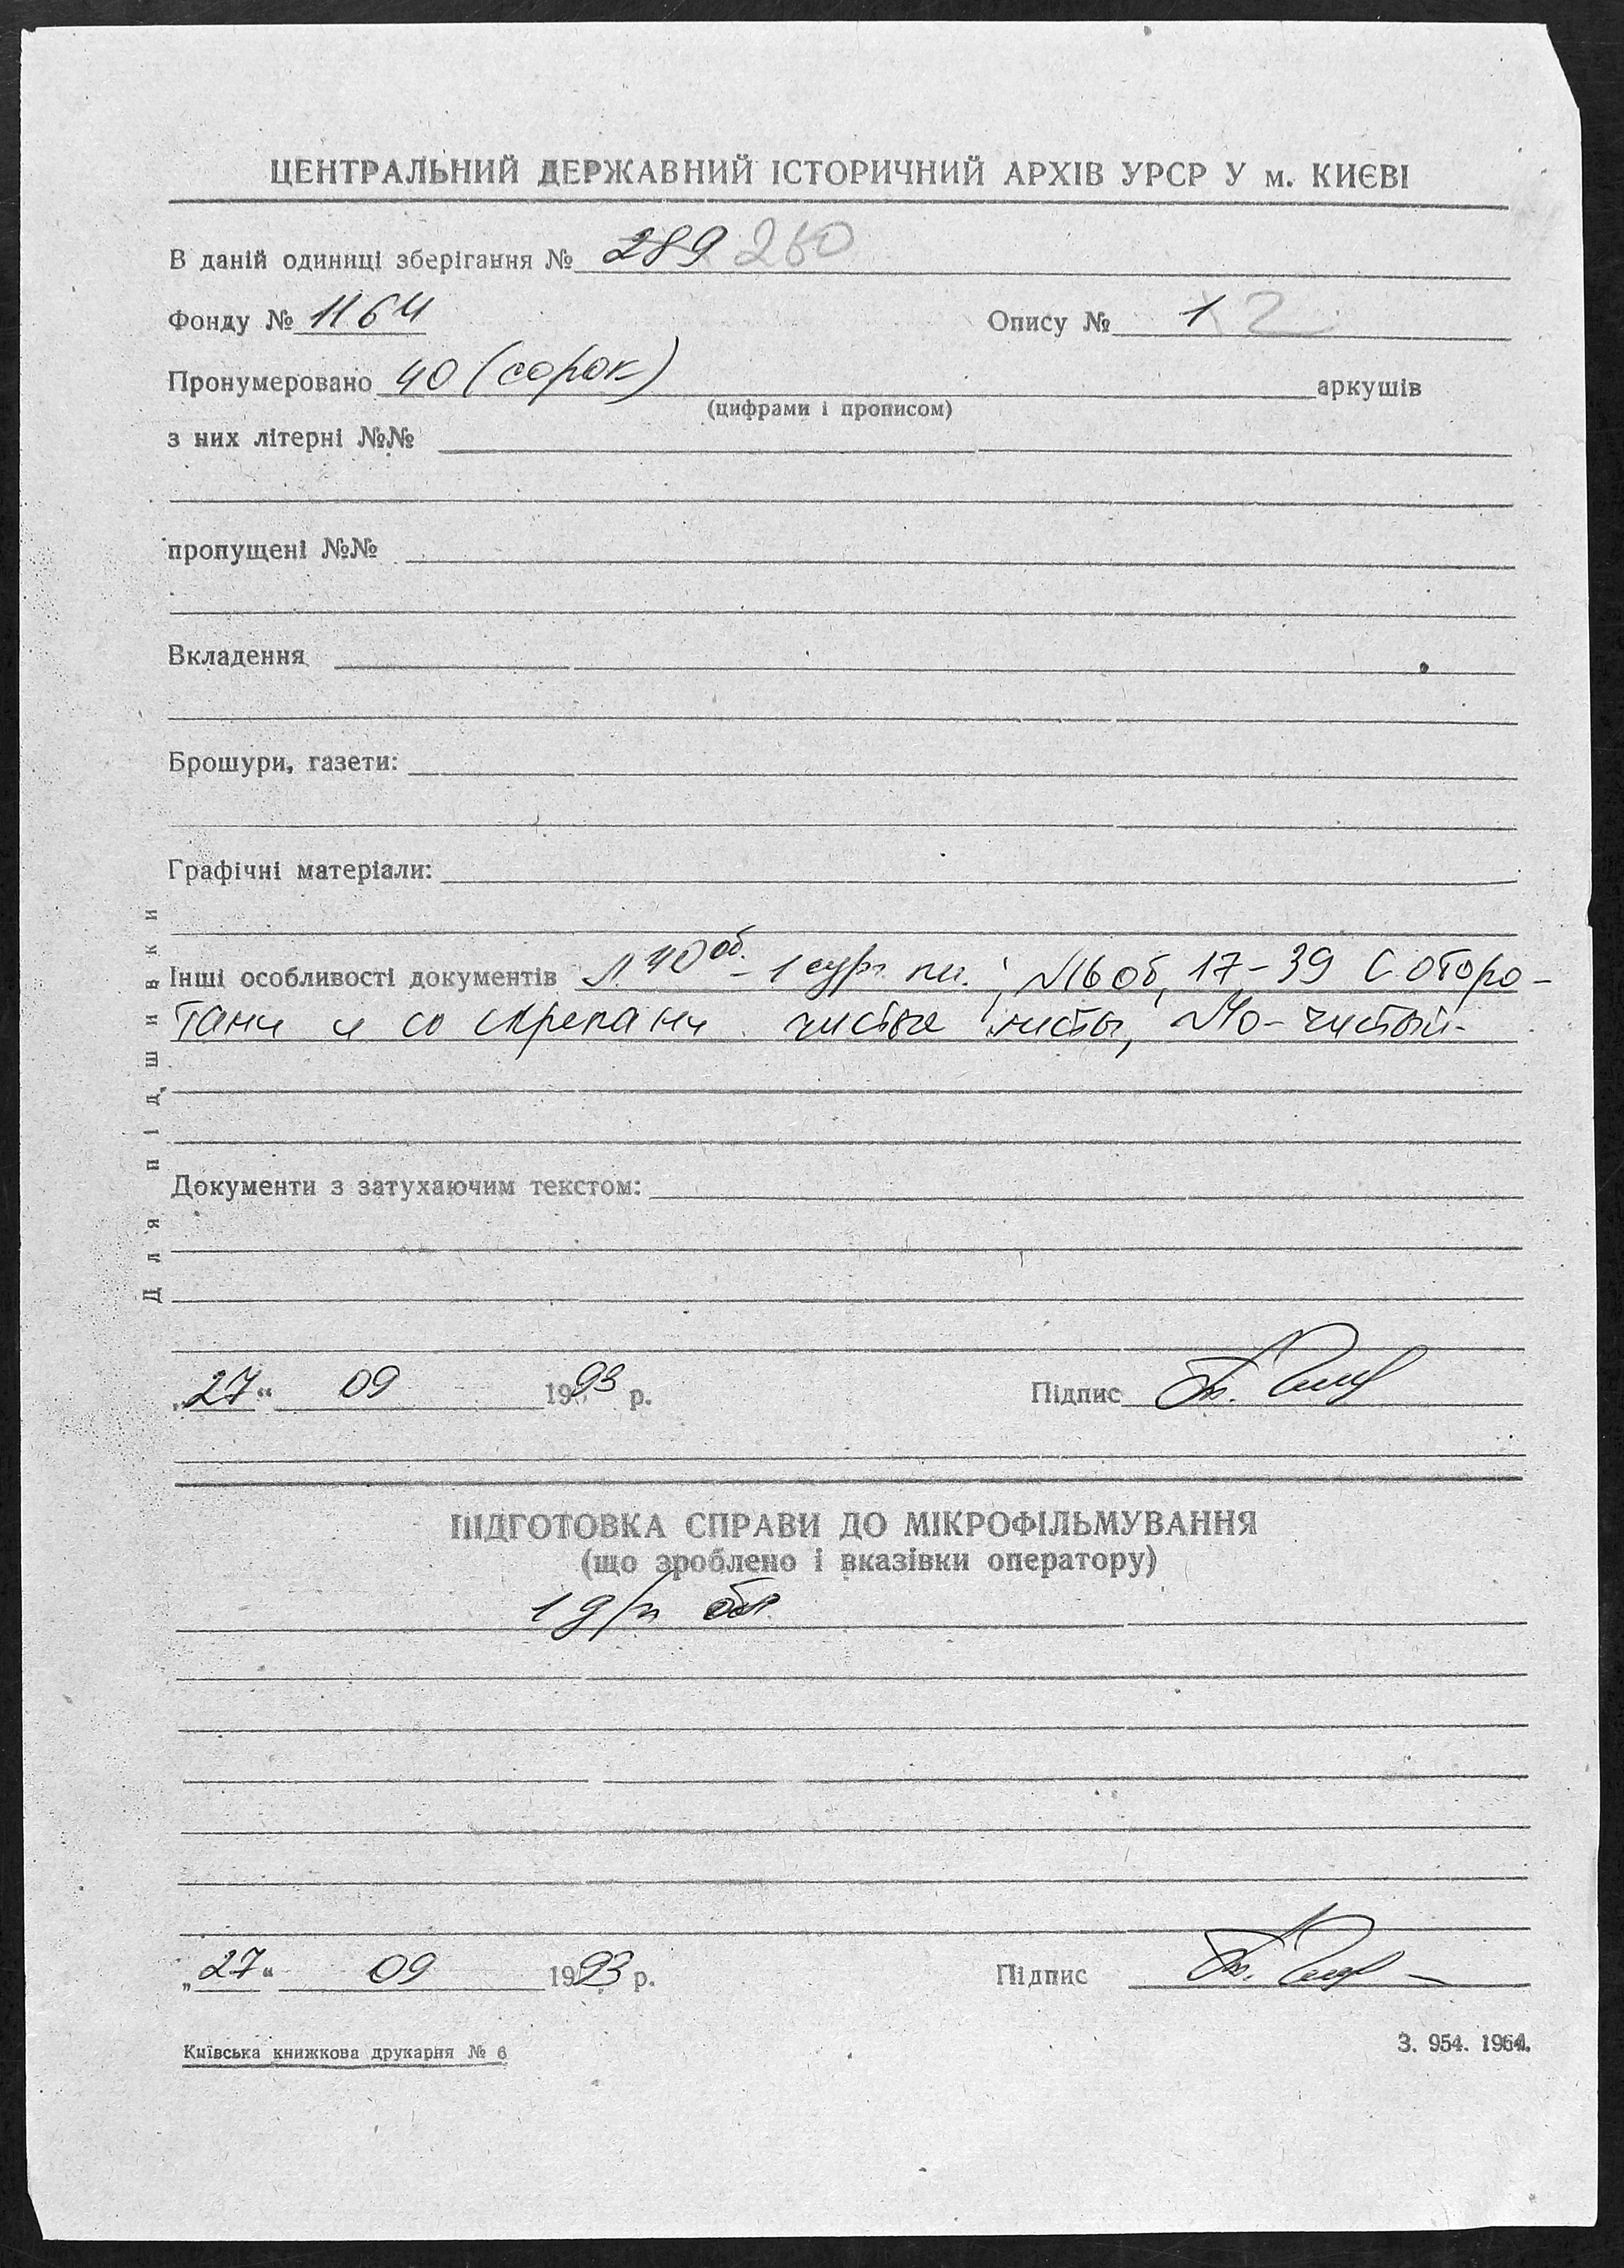 ЦЕНТРАЛЬНИЙ ДЕРЖАВНИЙ ІСТОРИЧНИЙ АРХІВ УРСР У м. КИЄВІ
В даній одиниці зберігання № 289 260
Фонду № 1164 Опису № 1 2
Пронумеровано 40 (сорок) аркушів
(цифрами і прописом)
з них літерні №№
пропущені №№
Вкладення
Брошури, газети:
Графічні матеріали:
Інші особливості документів Л. 40 об. - 1 сург. печ.; 16 об, 17-39 с оборо-
тами и со скрепами чистые листы, 40 - чистый
Документи з затухаючим текстом:
Для підшивки
„27“ 09 1993 р. Підпис
ПІДГОТОВКА СПРАВИ ДО МІКРОФІЛЬМУВАННЯ
(що зроблено і вказівки оператору)
1 д/п
„27“ 09 1993 р. Підпис
Київська книжкова друкарня № 6 З. 954. 1964.